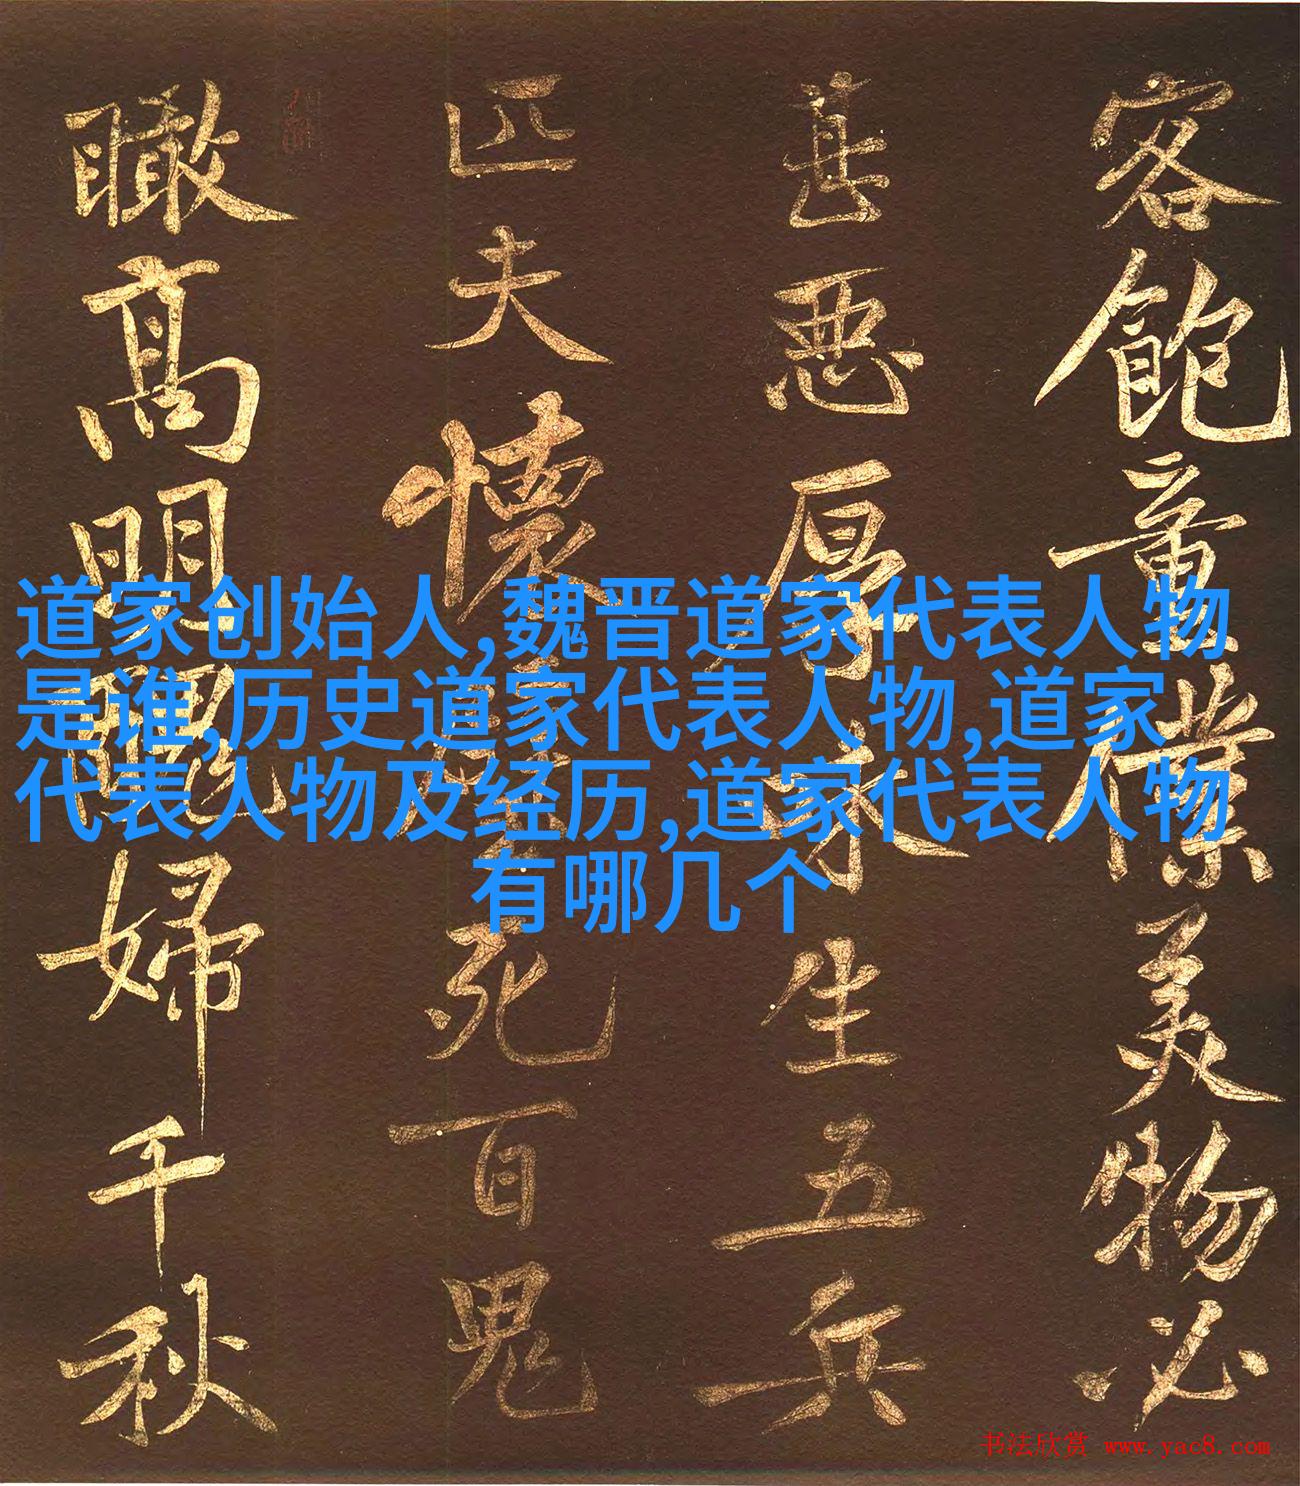 道家创始人,魏晋道家代表人物
是谁,历史道家代表人物,道家
代表人物及经历,道家代表人物
有哪几个
客飽童僕美物必
甚惡厚味生五兵
匹夫懷璧死百鬼
瞰高明醜婦千秋
书法欣赏 www.yac8.com